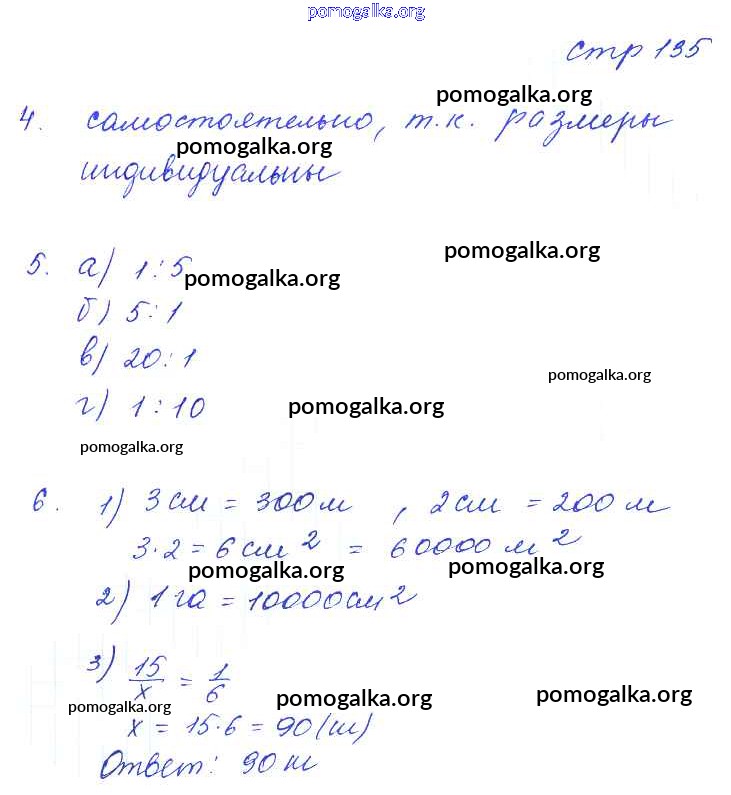 pomogalka.org
стр 135
pomogalka.org
4. самостоятельно, т.к. размеры
pomogalka.org
индивидуальны
5. а) 1:5
pomogalka.org
pomogalka.org
б) 5:1
в) 20:1
pomogalka.org
г) 1:10
pomogalka.org
pomogalka.org
6. 1) 3 см = 300 м, 2 см = 200 м
3·2 = 6 см² = 60000 м²
pomogalka.org
pomogalka.org
2) 1 га = 10000 см²
3) 15/x = 1/6
pomogalka.org
pomogalka.org
pomogalka.org
x = 15·6 = 90 (ш)
Ответ: 90 ш